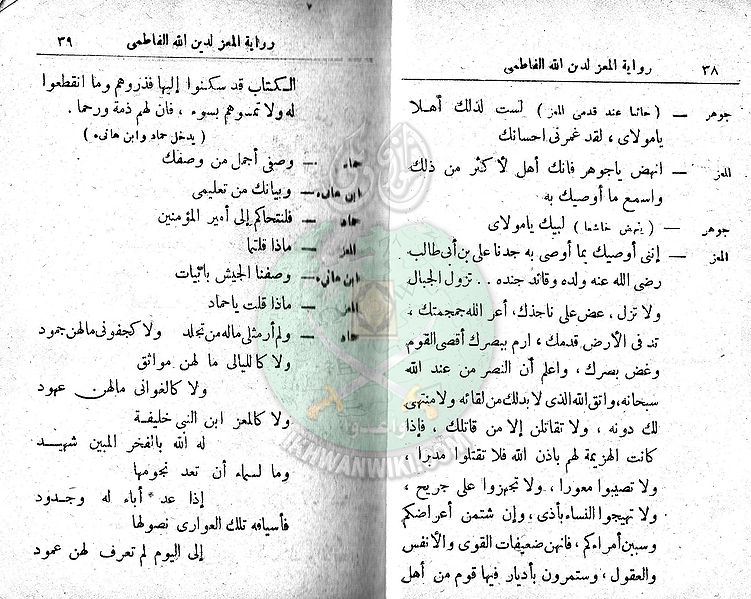 ٣٨ رواية المعز لدين الله الفاطمى
جوهر — (جاثيا عند قدمى المعز) لست لذلك أهلا
يامولاى ، لقد غمرنى احسانك
المعز — انهض ياجوهر فانك أهل لأكثر من ذلك
واسمع ما أوصيك به
جوهر — (ينهض خاشعا) لبيك يامولاى
المعز — إننى أوصيك بما أوصى به جدنا على بن أبى طالب
رضى الله عنه ولده وقائد جنده . . تزول الجبال
ولا تزل ، عض على ناجذك ، أعر الله جمجمتك ،
تد فى الأرض قدمك ، ارم ببصرك أقصى القوم
وغض بصرك ، واعلم أن النصر من عند الله
سبحانه ، واتق الله الذى لا بد لك من لقائه ولا منتهى
لك دونه ، ولا تقاتلن إلا من قاتلك ، فإذا
كانت الهزيمة لهم باذن الله فلا تقتلوا مدبرا ،
ولا تصيبوا معورا ، ولا تجهزوا على جريح ،
ولا تهيجوا النساء بأذى ، وإن شتمن أعراضكم
وسببن أمراءكم ، فانهن ضعيفات القوى والأنفس
والعقول ، وستمرون بأديار فيها قوم من أهل
رواية المعز لدين الله الفاطمى ٣٩
الكتاب قد سكنوا إليها فذروهم وما انقطعوا
له ولا تمسوهم بسوء ، فان لهم ذمة ورحما .
(يدخل حماد وابن هانىء)
حماد — وصفى أجمل من وصفك
ابن هانىء — وبيانك من تعليمى
حماد — فلنتحاكم إلى أمير المؤمنين
المعز — ماذا قلتما
ابن هانىء — وصفنا الجيش بأبيات
المعز — ماذا قلت ياحماد
حماد — ولم أر مثلى ماله من تجلد ولا كجفونى مالهن جمود
ولا كالليالى ما لهن مواثق
ولا كالغوانى مالهن عهود
ولا كالمعز ابن النبى خليفة
له الله بالفخر المبين شهيد
وما لسماء أن تعد نجومها
إذا عد أباء له وجدود
فأسيافه تلك العوارى نصولها
إلى اليوم لم تعرف لهن عمود
IKHWANWIKI.COM